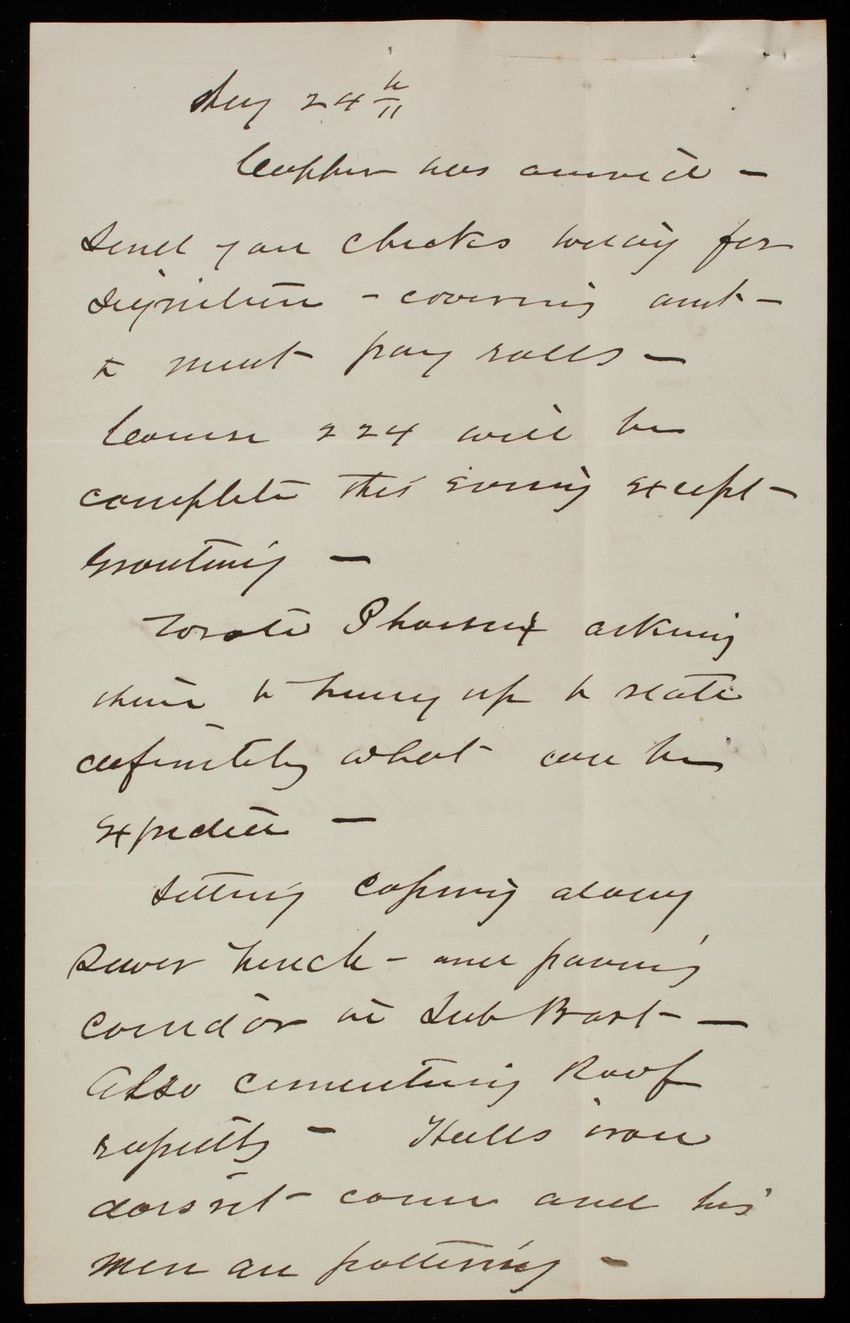 Aug 24th
Copper has arrived -
Send you checks today for
signature - covering amt -
to meet pay rolls -
Course 224 will be
complete this evening except -
Grouting -
Wrote Phoenix asking
them to hurry up & state
definitely what can be
expected -
Setting Coping along
Sewer trench - and paving
corridor in Sub Bast -
Also cementing Roof
rapidly - Halls iron
doesn't come and his
men are pottering -